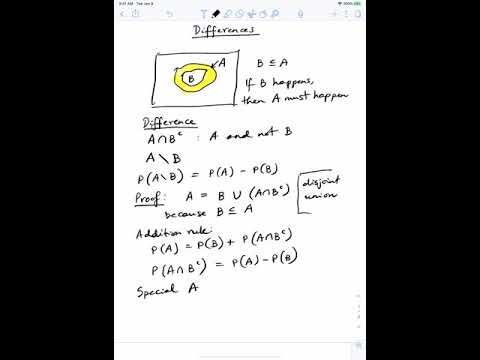 Differences
A
B
B ⊆ A
If B happens,
then A must happen
Difference
A∩Bᶜ : A and not B
A \ B
P(A \ B) = P(A) - P(B)
Proof: A = B ∪ (A∩Bᶜ)
because B ⊆ A
disjoint
union
Addition rule:
P(A) = P(B) + P(A∩Bᶜ)
P(A∩Bᶜ) = P(A) - P(B)
Special A